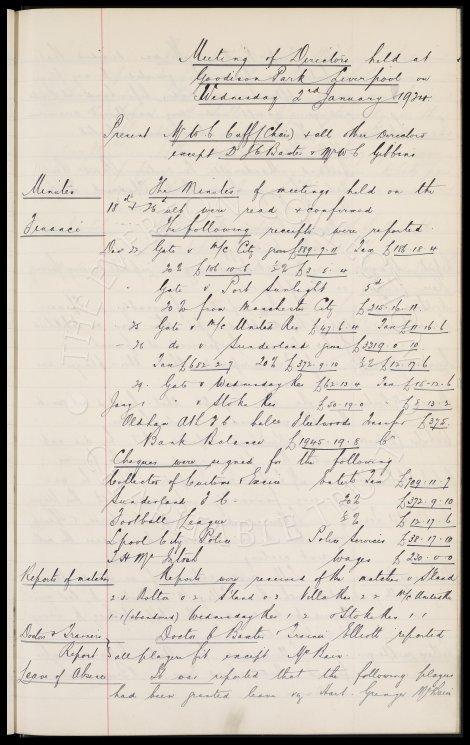 Meeting of Directors held at
Goodison Park Liverpool on
Wednesday 2nd January 1924.
Present Mr W C Cuff (Chair) & all other Directors
except Dr J C Baxter & Mr W C Gibbins
Minutes The Minutes of meetings held on the
18th & 26th ult were read & confirmed
Finance The following receipts were reported.
Dec 22 Gate v M/c City gross £889.9.11 Tax £186.18.4
20% £106.10.6 ½% £3.5.4
" Gate v Port Sunlight 5d
20% from Manchester City £215.16.11
" 25 Gate v M/c United Res £47.6.4 Tax £11.16.6
" 26 do v Sunderland gross £3319.0.10
Tax £682.2.7 20% £372.9.10 ½% £12.17.6
" 29 Gate v Wednesday Res £62.13.4 Tax £15.12.6
Jany 1 " v Stoke Res £50.19.0 " £8.13.2
Oldham Ath F C balce Fleetwoods Transfer £375
Bank Balance £1945.19.8
Cheques were signed for the following
Collector of Customs & Excise Enterts Tax £709.11.7
Sunderland F C 20% £372.9.10
Football League ½% £12.17.6
Lpool City Police Police Services £38.17.10
T H McIntosh Wages £230.0.0
Reports of matches Reports were received of the matches v S'land
2.3 Bolton 0.2 S'land 0.3 Villa Res 2.2 M/c United Res
1-1 (abandoned) Wednesday Res 1.2 & Stoke Res 1.1
Doctor & Trainers Doctor Baxter & Trainer Elliott reported
Report all players fit except McBain.
Leave of Absence It was reported that the following players
had been granted leave viz Hart. Grenyer McBain